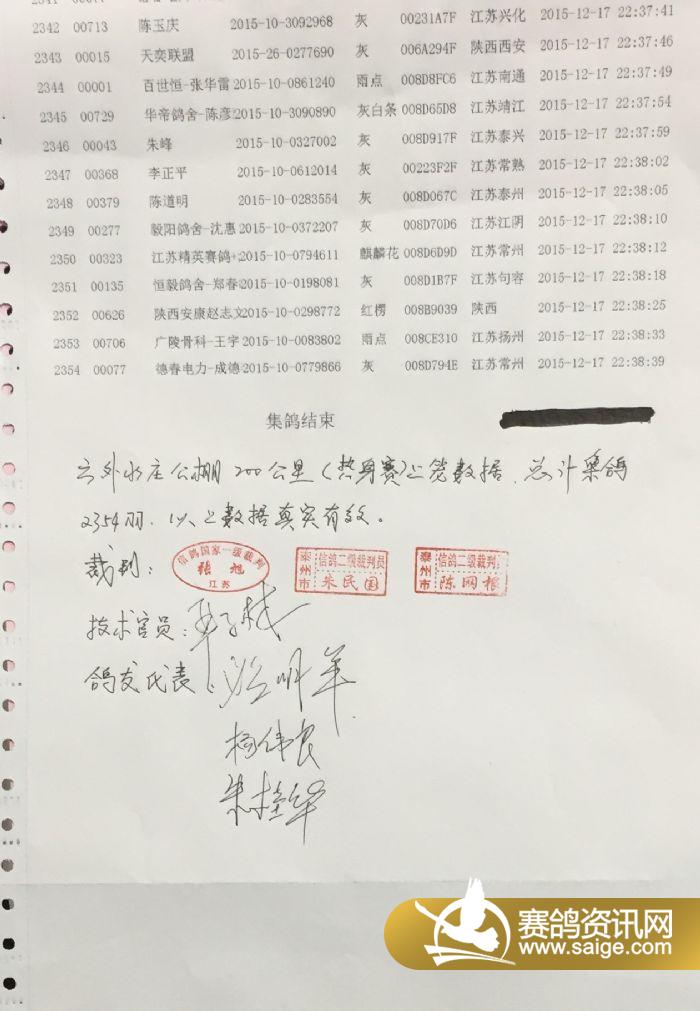 2342 00713 陈玉庆 2015-10-3092968 灰 00231A7F 江苏兴化 2015-12-17 22:37:41
2343 00015 天奕联盟 2015-26-0277690 灰 006A294F 陕西西安 2015-12-17 22:37:46
2344 00001 百世恒-张华雷 2015-10-0861240 雨点 008D8FC6 江苏南通 2015-12-17 22:37:49
2345 00729 华帝鸽舍-陈彦 2015-10-3090890 灰白条 008D65D8 江苏靖江 2015-12-17 22:37:54
2346 00043 朱峰 2015-10-0327002 灰 008D917F 江苏泰兴 2015-12-17 22:37:59
2347 00368 李正平 2015-10-0612014 灰 00223F2F 江苏常熟 2015-12-17 22:38:02
2348 00379 陈道明 2015-10-0283554 灰 008D067C 江苏泰州 2015-12-17 22:38:05
2349 00277 毅阳鸽舍-沈惠 2015-10-0372207 灰 008D70D6 江苏江阴 2015-12-17 22:38:10
2350 00323 江苏精英赛鸽 2015-10-0794611 麒麟花 008D6D9D 江苏常州 2015-12-17 22:38:12
2351 00135 恒毅鸽舍-郑春 2015-10-0198081 灰 008D1B7F 江苏句容 2015-12-17 22:38:18
2352 00626 陕西安康赵志文 2015-10-0298772 红楞 008B9039 陕西 2015-12-17 22:38:25
2353 00706 广陵骨科-王宇 2015-10-0083802 雨点 008CE310 江苏扬州 2015-12-17 22:38:33
2354 00077 德春电力-成德 2015-10-0779866 灰 008D794E 江苏常州 2015-12-17 22:38:39
集鸽结束
云外水庄公棚200公里(热身赛)上笼数据.总计集鸽
2354羽.以上数据真实有效。
裁判:
信鸽国家一级裁判
张旭
江苏
泰州市
信鸽二级裁判员
朱民国
泰州市
信鸽二级裁判员
陈网根
技术官员:
鸽友代表:
杨伟良
朱桂华
赛鸽资讯网
www.saige.com